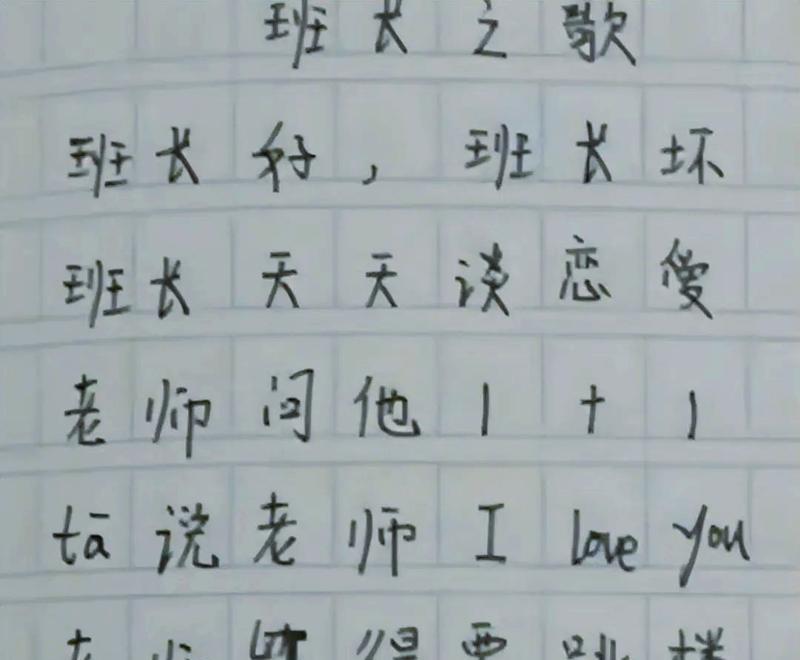 班长之歌
班长好，班长坏
班长天天谈恋爱
老师问他1+1
tā说老师I love you